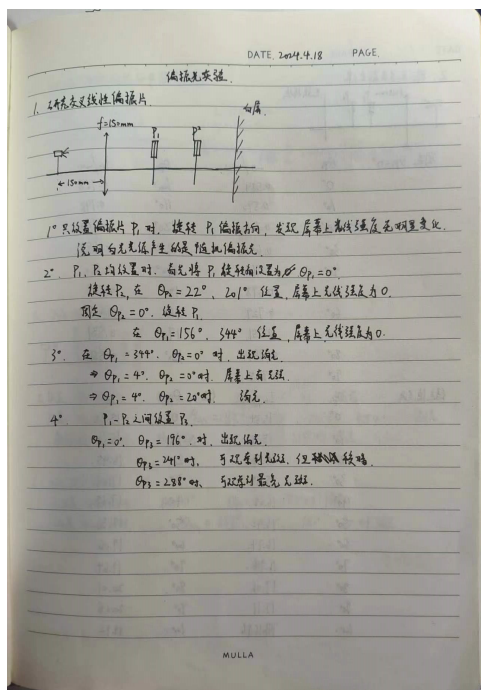 DATE. 2024.4.18 PAGE.
偏振光实验.
1. 研究交叉线性偏振片.
f=150mm P₁ P² 白屏.
←150mm→
1° 只放置偏振片 P₁ 时, 旋转 P₁ 偏振方向, 发现屏幕上光线强度无明显变化.
说明白光光源产生的是随机偏振光.
2° P₁, P₂ 均放置时. 首先将 P₁ 旋转角设置为 θp₁=0°.
旋转 P₂, 在 θp₂=22°、201° 位置, 屏幕上光线强度为0.
固定 θp₂=0°, 旋转 P₁
在 θp₁=156°、344° 位置, 屏幕上光线强度为0.
3°. 在 θp₁=344°、θp₂=0° 时, 出现消光
⇒ θp₁=4°. θp₂=0° 时. 屏幕上有光强.
⇒ θp₁=4°. θp₂=20° 时. 消光.
4° P₁-P₂ 之间放置 P₃
θp₁=0°. θp₃=196°. 时. 出现消光
θp₃=241° 时, 可观察到光斑. 但 较暗.
θp₃=288° 时、可观察到最亮光斑.
MULLA